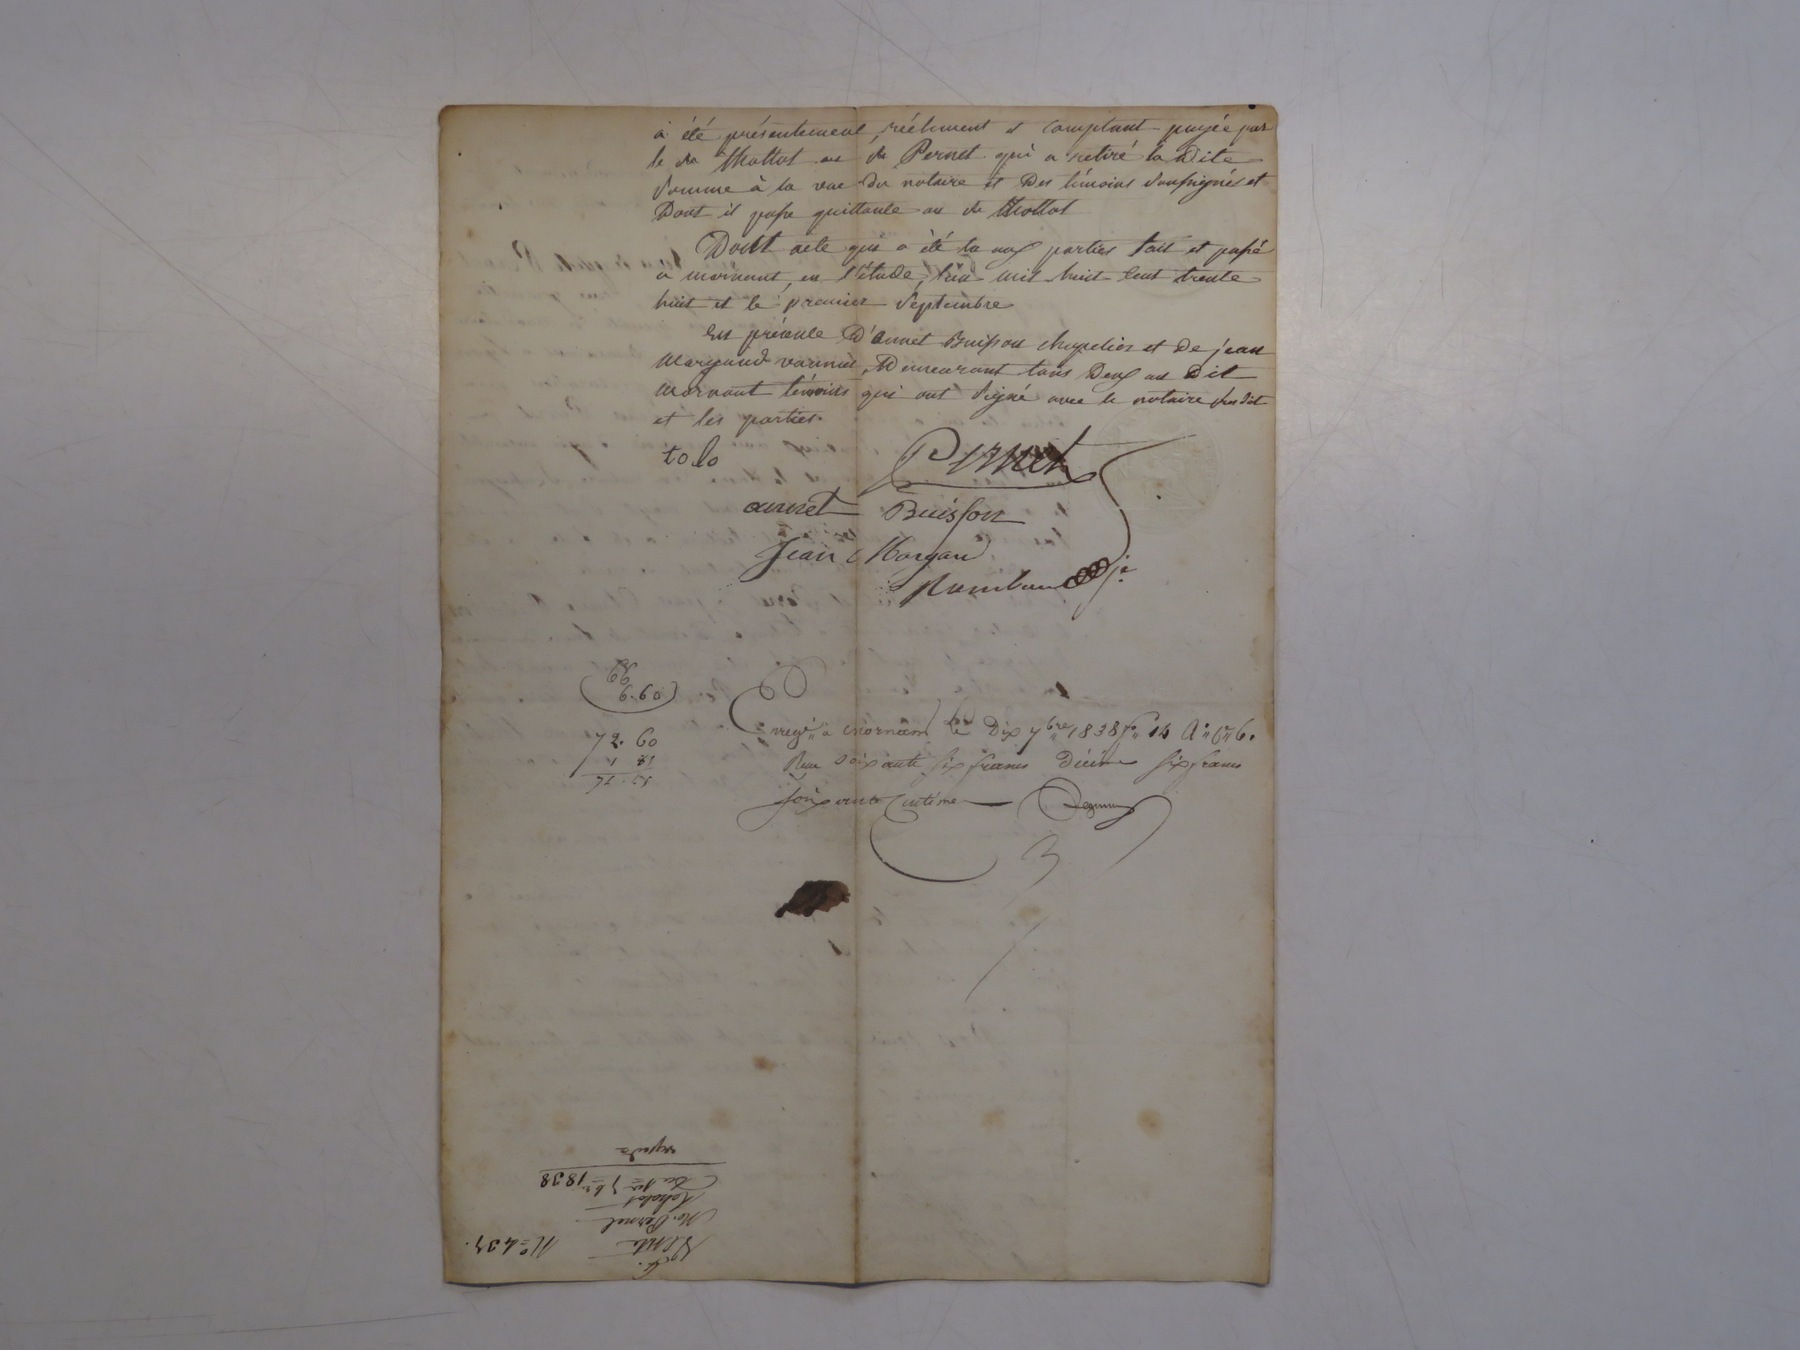 a été présentement, réélement et comptant payée par
le sr Thollot au sr Pernet qui a retiré la dite
somme à la vue du notaire et des témoins soussignés et
Dont il passe quittance au sr Thollot
Dont acte qui a été lu aux parties fait et passé
a mornant, en l'étude, l'an mil huit cent trente
huit et le premier Septembre
En présence D'annet Buisson chapelier et de jean
Margand vannier, Demeurant tous Deux au Dit
Mornant témoins qui ont signé avec le notaire susdit
et les parties.
tolo
Pernet
annet Buisson
Jean Morgand
Rambaud je
99
6.60
72.60
1
enregé a mornant le Dix 7bre 1838 fo 14 Ro Ce 6.
Reçu Soixante six francs décime six francs
soixante Centime
Expédn
Du 1er 7bre 1838
Mr Pernet
Vente
No 437.